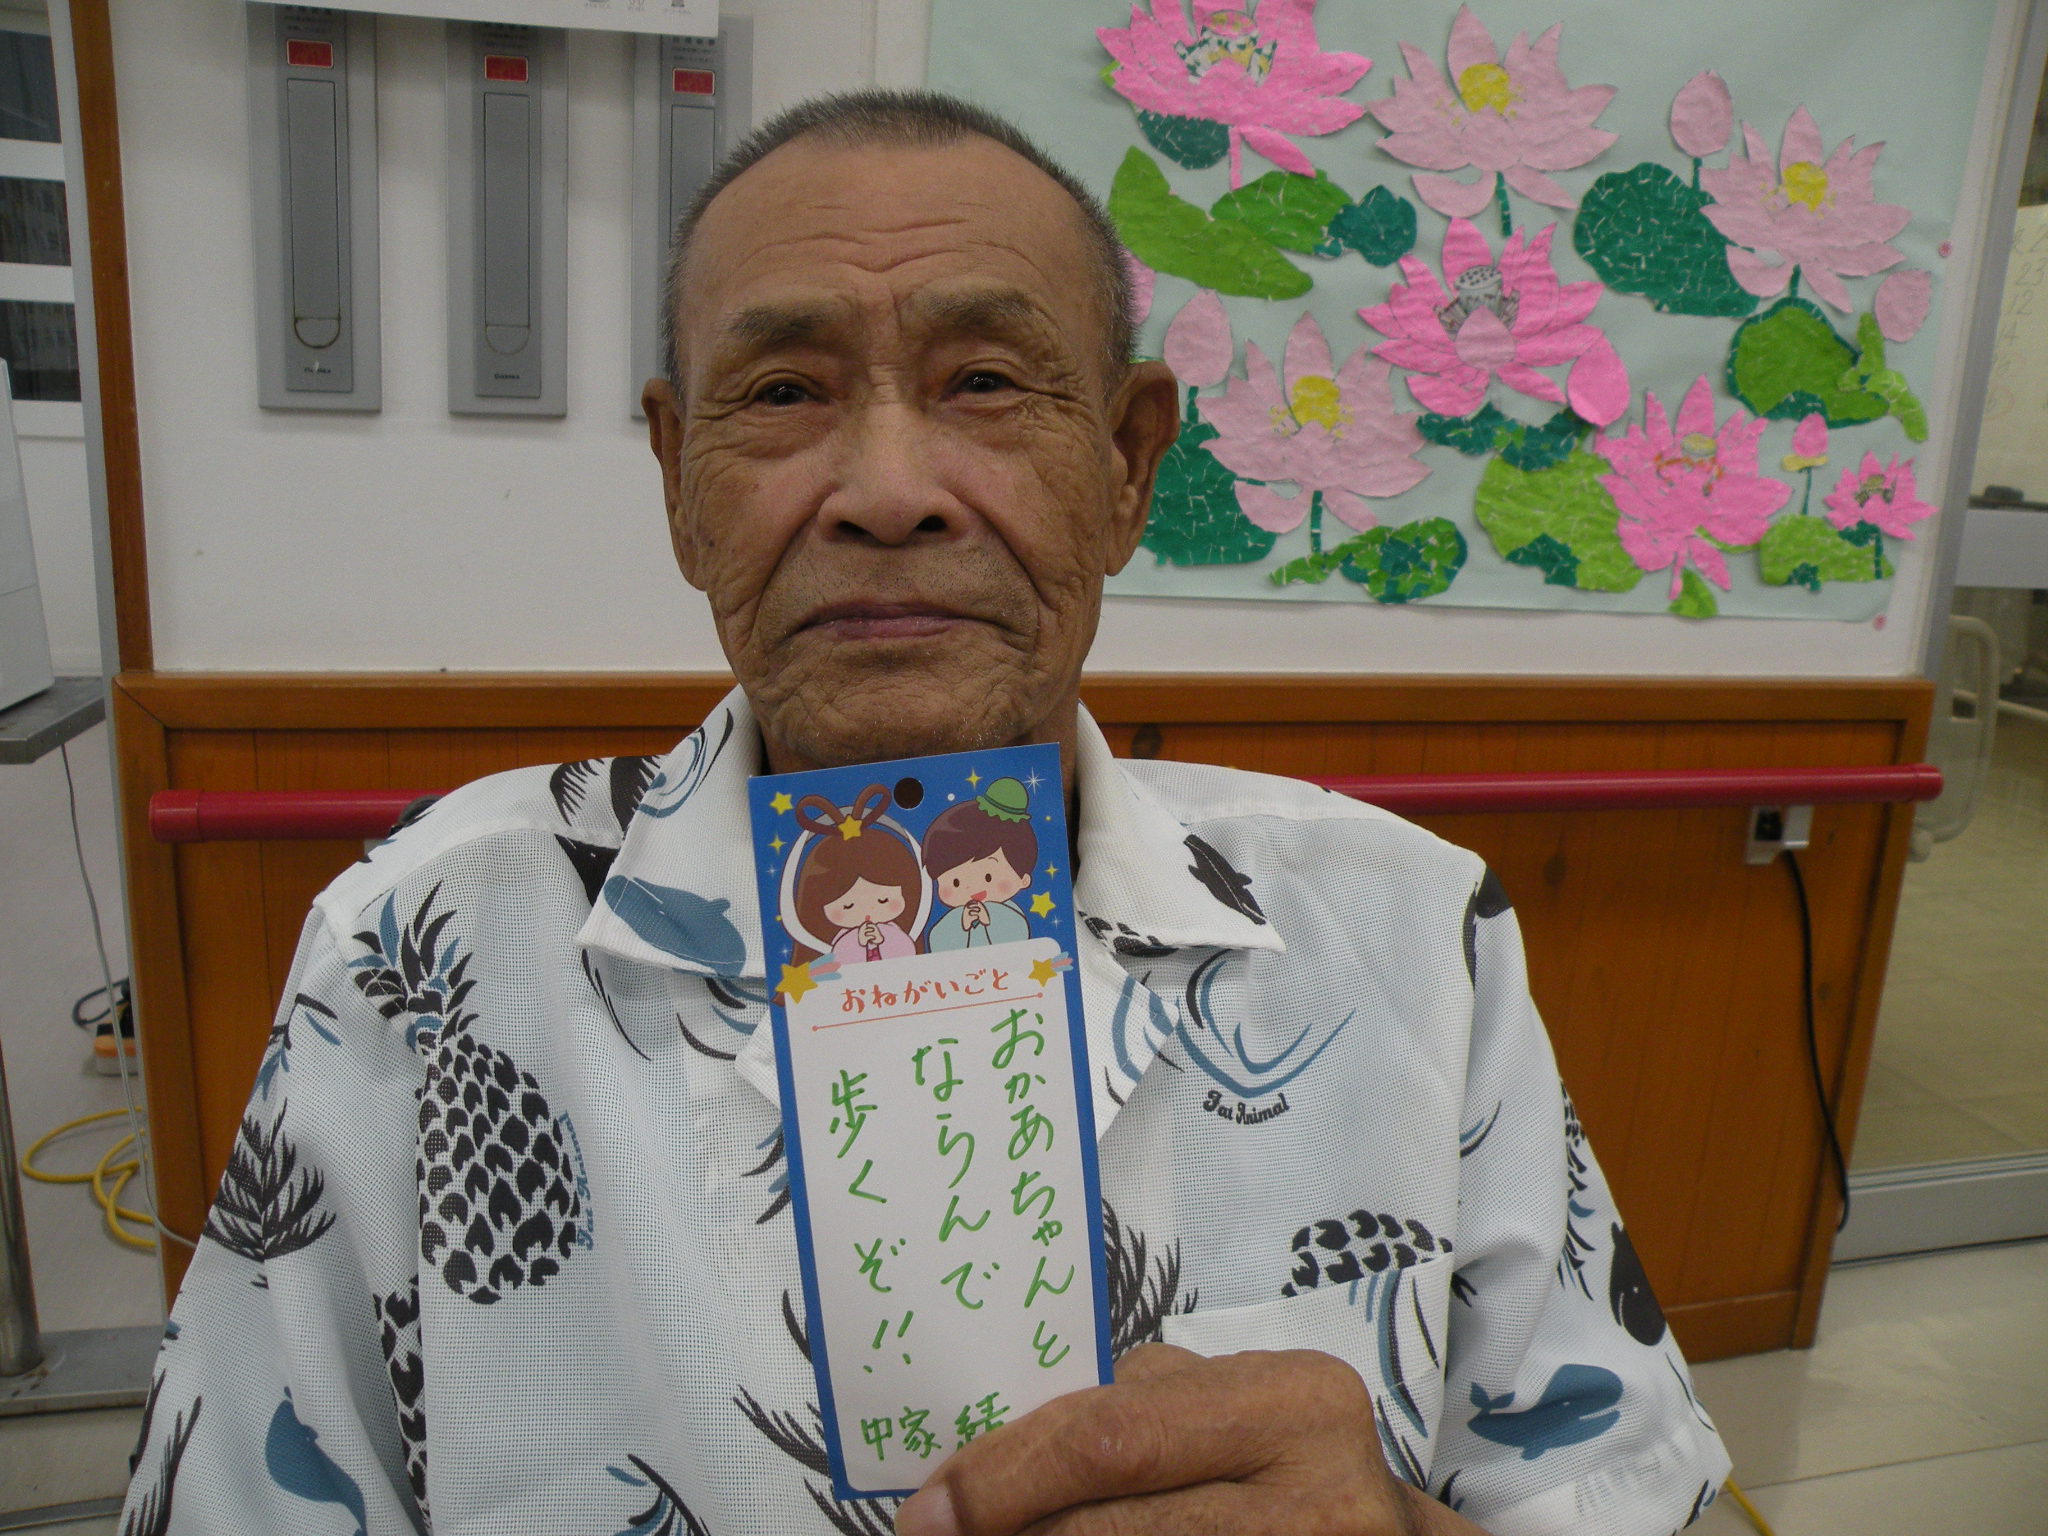 おねがいごと
おかあちゃんと
ならんで
歩くぞ!!
中家 績
Fat Animal
Fat Animal